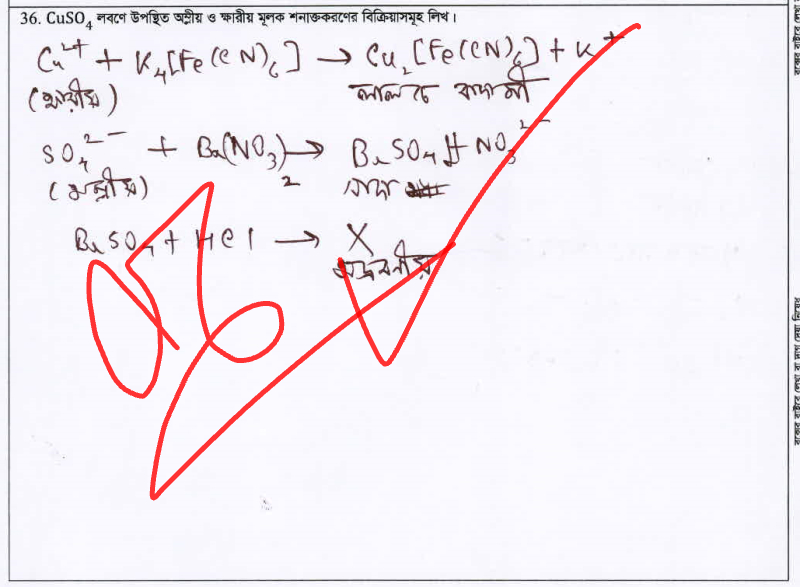 36. CuSO₄ লবণে উপস্থিত অম্লীয় ও ক্ষারীয় মূলক শনাক্তকরণের বিক্রিয়াসমূহ লিখ।
Cu²⁺ + K₄[Fe(CN)₆] → Cu₂[Fe(CN)₆] + K⁺
(ক্ষারীয়) লালচে বাদামী
SO₄²⁻ + Ba(NO₃)₂ → BaSO₄ + NO₃²⁻
(অম্লীয়) সাদা
BaSO₄ + HCl → X
অদ্রবনীয়